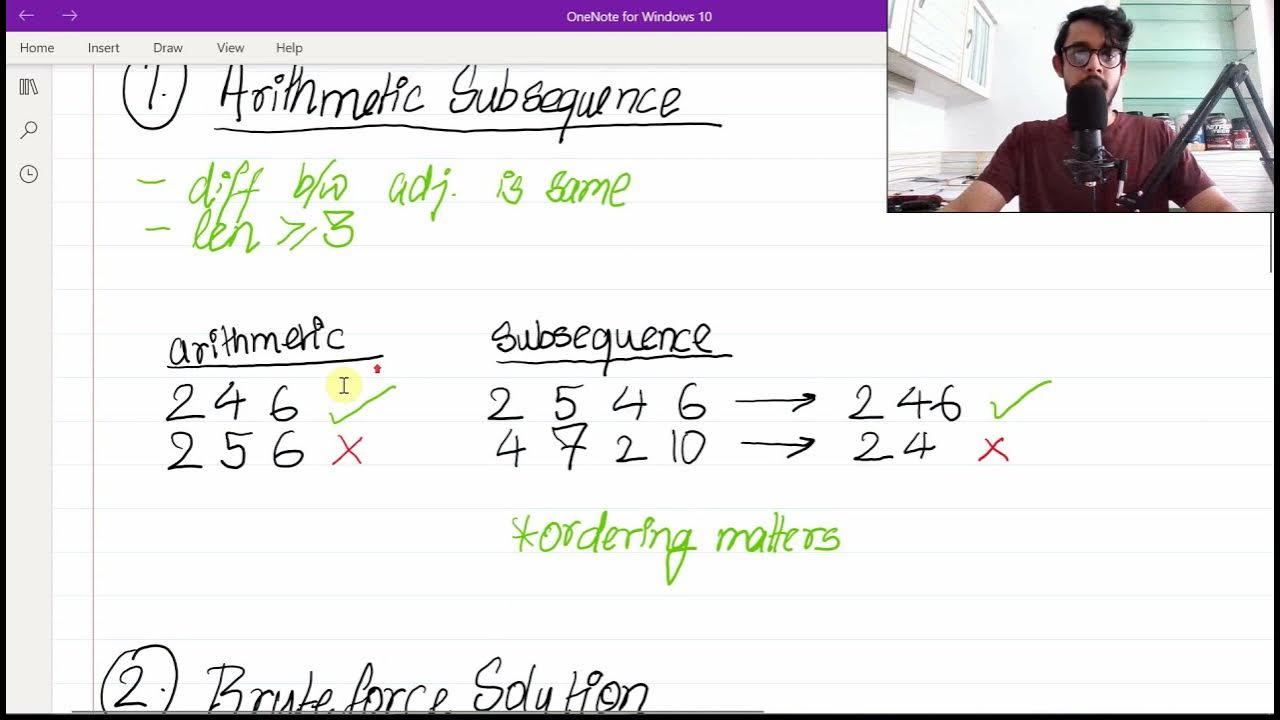 OneNote for Windows 10
Home Insert Draw View Help
1. Arithmetic Subsequence
- diff b/w adj. is same
- len ⩾ 3
arithmetic subsequence
2 4 6 ✓ 2 5 4 6 → 2 4 6 ✓
2 5 6 x 4 7 2 10 → 2 4 x
*ordering matters
2. Bruteforce Solution